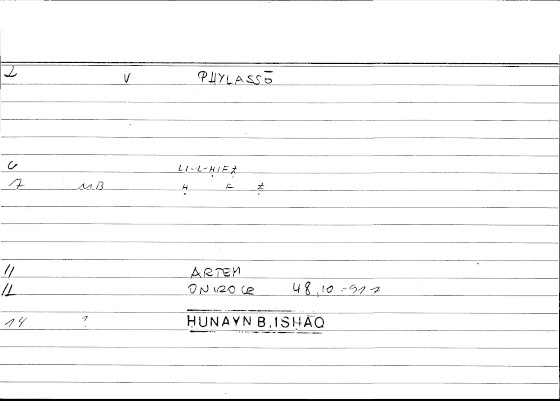 2 V PHYLASSŌ
6 LI-L-ḤIFẒ
7 MB Ḥ F Ẓ
11 ARTEM
12 ONIROCR 48,10
14 ? HUNAYN B. ISHAQ